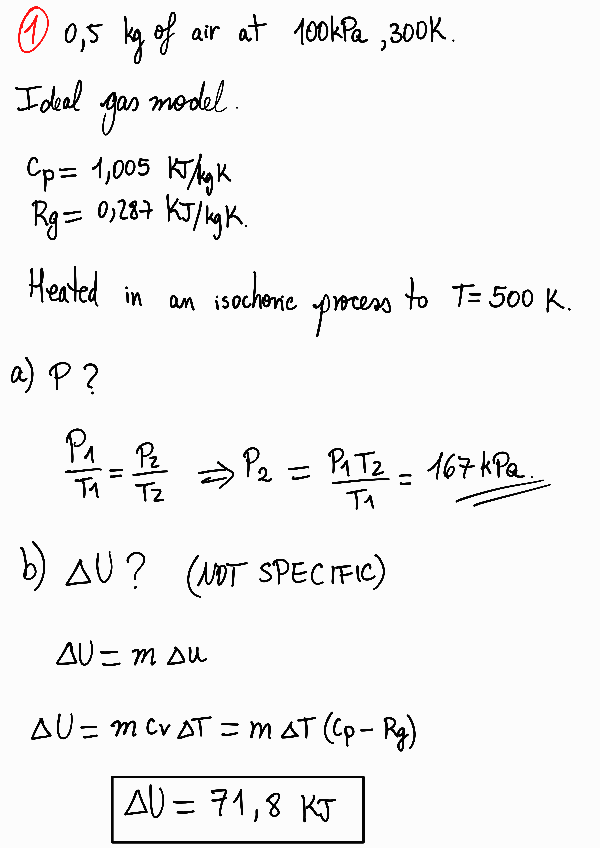 ① 0,5 kg of air at 100kPa, 300K.
Ideal gas model.
Cp = 1,005 KJ/kgK
Rg = 0,287 KJ/kgK.
Heated in an isochoric process to T = 500 K.
a) P ?
P1/T1 = P2/T2 ⟹ P2 = P1 T2/T1 = 167 kPa.
b) ΔU ? (NOT SPECIFIC)
ΔU = m Δu
ΔU = m Cv ΔT = m ΔT (Cp - Rg)
ΔU = 71,8 KJ